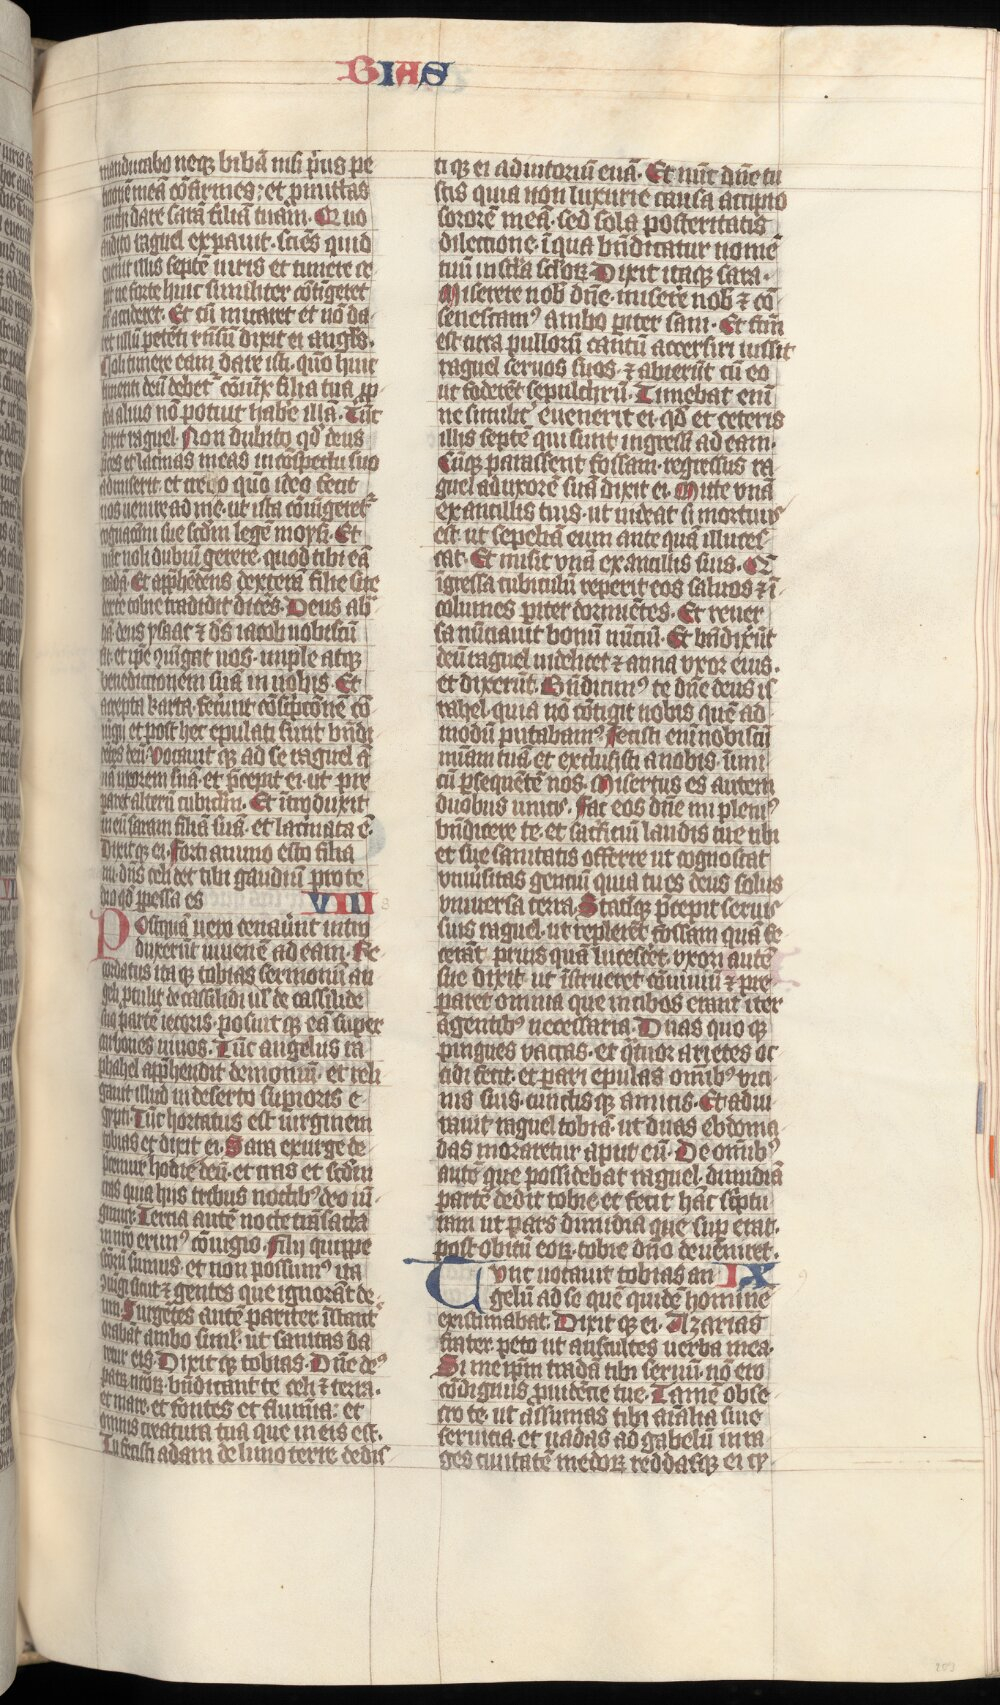 BIAS
manducabo neq₃ bibā nisi p̄us pe
ticionē meā cōfirmes; et p̄mittas
michi dare sarā filiā tuam. Quo
audito raguel expauit. sciēs quid
euenit illis septē uiris et timere ce
pit ne forte huic similiter cōtigeret
Et cū nutaret et nō da
ret illū petēti rn̄sū dixit ei angl̄s.
Noli timere eam dare isti. quō huic
timenti deū debet᷑ cōiūx filia tua ꝓ
terea alius nō potuit habe illā. Tūc
dixit raguel. Non dubito qd̄ deus
p̄ces et lacrimas meas in cōspectu suo
admiserit. et credo quō ideo fecit
uos uenire ad me. ut ista cōiūgeret᷑
cognacōni sue sc̄dm legē moysi. Et
nūc noli dubiū gerere. quod tibi eā
tradā. Et apphēdens dexterā filie sue
dextre tobie tradidit dicēs. Deus ab
rahā. deus ysaac ⁊ ds̄ iacob uobiscū
sit. et ip̄e ꝯiūgat uos. impleatq₃
benedictionem suā in uobis. Et
accepta karta. fecerūt cōsc̄pconē cō
iugii. et post hec epulati sunt bn̄di
cētes deū. Vocauitq₃ ad se raguel an
nā uxorem suā. et p̄cepit ei. ut pre
paret alterū cubiclm̄. Et introduxit
in eū saram filiā suā. et lacrimata ē.
Dixitq₃ ei. Forti animo esto filia
mi. dn̄s celi det tibi gaudiū pro te
dio qd̄ ꝑpessa es VIII
Postquā uero cenauerūt intro
duxerūt iuuenē ad eam. Re
cordatus itaq₃ tobias sermonū an
geli ꝓtulit de cassilidi ul̄ de cassilide
suo partē iecoris. posuitq₃ eā super
carbones uiuos. Tūc angelus ra
phahel app̄hendit demoniū. et reli
gauit illud in deserto supioris e
gypti. Tūc hortatus est uirginem
tobias et dixit ei. Sara exurge de
p̄cemur hodie deū. et cras et sec̄dm
cras quia hiis tribus noctib₉ deo iū
gimur. Tercia autē nocte trāsacta
in nr̄o erim₉ cōiugio. Filii quippe
sc̄orū sumus. et non possum₉ ita
ꝯiūgi sicut ⁊ gentes que ignorāt de
um. Surgētes autē pariter. īstant᷑
orabāt ambo siml̄. ut sanitas da
retur eis. Dixitq₃ tobias. Dn̄e de₉
patrꝝ nr̄orꝝ. bn̄dicant te celi ⁊ terra.
et mare. et fontes et flumīa. et
omnis creatura tua que in eis est.
Tu fecisti adam de limo terre dedis
tiq₃ ei adiutoriū euā. Et nūc dn̄e tu
scis quia non luxurie causa accipio
sororē meā. sed sola posteritatis
dilectione. ī qua bn̄dicatur nomē
tuū in sc̄la sc̄lorꝝ Dixit itaq₃ sara.
Miserere nob̄ dn̄e. misere nob̄ ⁊ cō
senescam₉ ambo p̄iter sani. Et factū
est circa pullorū cantū accersiri iussit
raguel seruos suos. ⁊ abierūt cū eo
ut foderēt sepulchrū. Timebat eni
ne similit᷑ euenerit ei. qd̄ et ceteris
illis septē qui sunt ingressi ad eam.
Cūq₃ parassent fossam. regressus ra
guel ad uxorē suā dixit ei. Mitte vnā
ex ancillis tuis. ut uideat si mortuus
est. ut sepeliā eum ante quā illuces
cat. Et misit vnā ex ancillis suis. Q̄
īgressa cubiculū reperit eos saluos ⁊ ī
columes p̄iter dormiētes. Et reuer
sa nūciauit bonū nūciū. Et bn̄dixer̄t
deū raguel uidelicet ⁊ anna vxor eius.
et dixerūt. Bn̄dicim₉ te dn̄e deus is
rahel. quia nō cōtigit nobis quē ad
modū putabam₉. Fecisti eni nobiscū
mīam tuā et exclusisti a nobis. inimi
cū ꝑsequētē nos. Misertus es autem
duobus unicis. Fac eos dn̄e mi pleni₉
bn̄dicere te. et sac̄ficiū laudis tue tibi
et sue sanitatis offerre ut cognoscat
vniuʼsitas gentiū quia tu es deus solus
vniuersa terra. Statīq₃ p̄cepit seruis
suis raguel. ut replerēt fossam quā fe
cerāt prius quā lucesceʼt. vxori autē
sue dixit. ut īstrueret cōuiuiū ⁊ pre
paret omnia que in cibos erant iter
agentib₉ necessaria. Duas quoq₃
pingues vaccas. et q̄tuor arietes oc
cidi fecit. et pari epulas omīb₉ vici
nis suis. cunctisq₃ amicis. Et adiu
rauit raguel tobiā. ut duas ebdoma
das moraretur aput eū. De omīb₉
autē que possidebat raguel. dimidiā
partē dedit tobie. et fecit hāc sc̄ptu
ram ut pars dimidia que supʼerat.
post obitū eorꝝ. tobie dn̄o deueniret.
Tunc uocauit tobias an IX
gelū ad se quē quidē hominē
existimabat. Dixitq₃ ei. Azarias
frater. peto ut auscultes uerba mea.
Si me ip̄m tradā tibi seruū. nō ero
cōdignus ꝓuidēcie tue. Tamē obse
cro te. ut assumas tibi aīalia siue
seruicia. et uadas ad gabelū in ra
ges ciuitatē medorꝝ. reddasq₃ ei cy
209